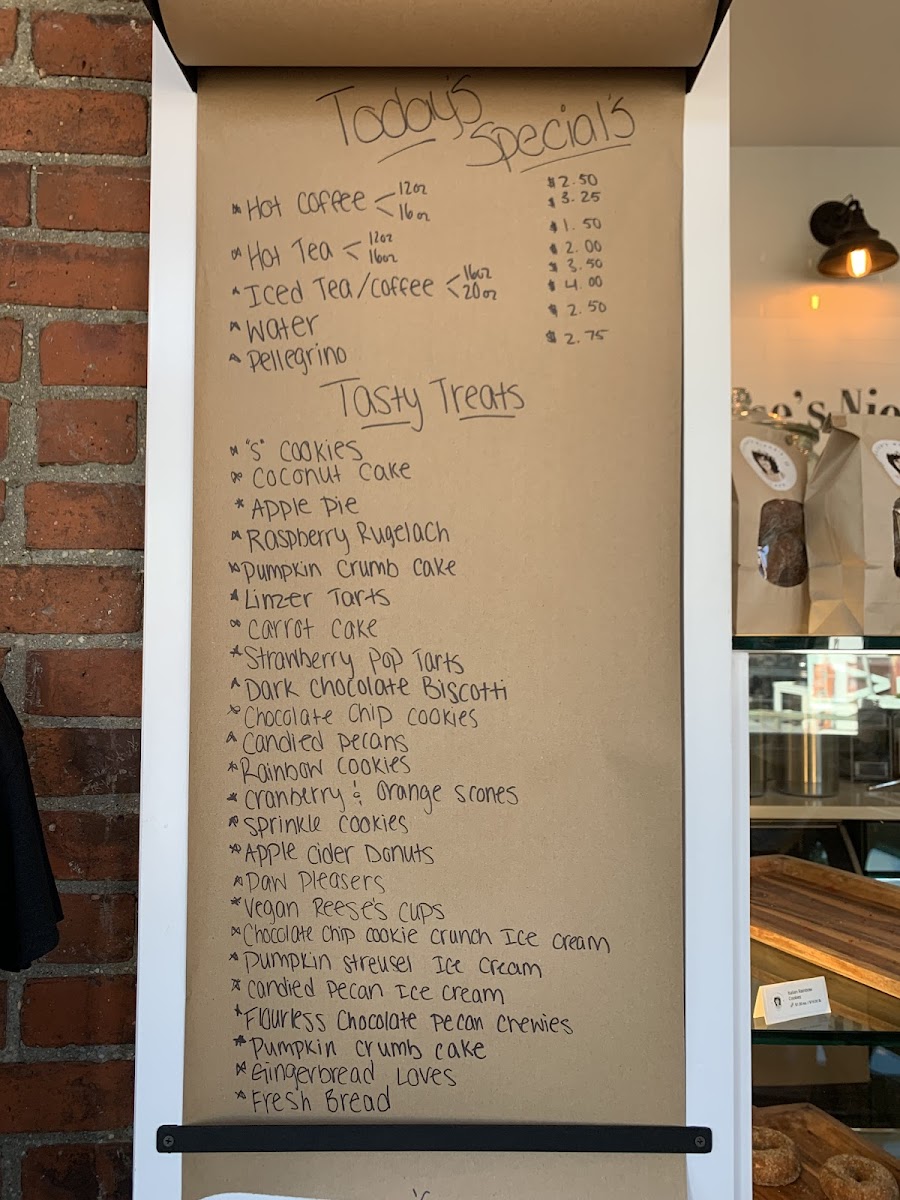 Today's Special's
* Hot Coffee < 12oz $2.50
16oz $3.25
* Hot Tea < 12oz $1.50
16oz $2.00
* Iced Tea/coffee < 16oz $3.50
20oz $4.00
* Water $2.50
* Pellegrino $2.75
Tasty Treats
* "S" Cookies
* Coconut Cake
* Apple Pie
* Raspberry Rugelach
* Pumpkin Crumb Cake
* Linzer Tarts
* Carrot Cake
* Strawberry Pop Tarts
* Dark Chocolate Biscotti
* Chocolate Chip Cookies
* Candied Pecans
* Rainbow Cookies
* Cranberry & Orange Scones
* Sprinkle Cookies
* Apple Cider Donuts
* Paw Pleasers
* Vegan Reese's Cups
* Chocolate Chip Cookie Crunch Ice Cream
* Pumpkin Streusel Ice Cream
* Candied Pecan Ice Cream
* Flourless Chocolate Pecan Chewies
* Pumpkin Crumb Cake
* Gingerbread Loves
* Fresh Bread